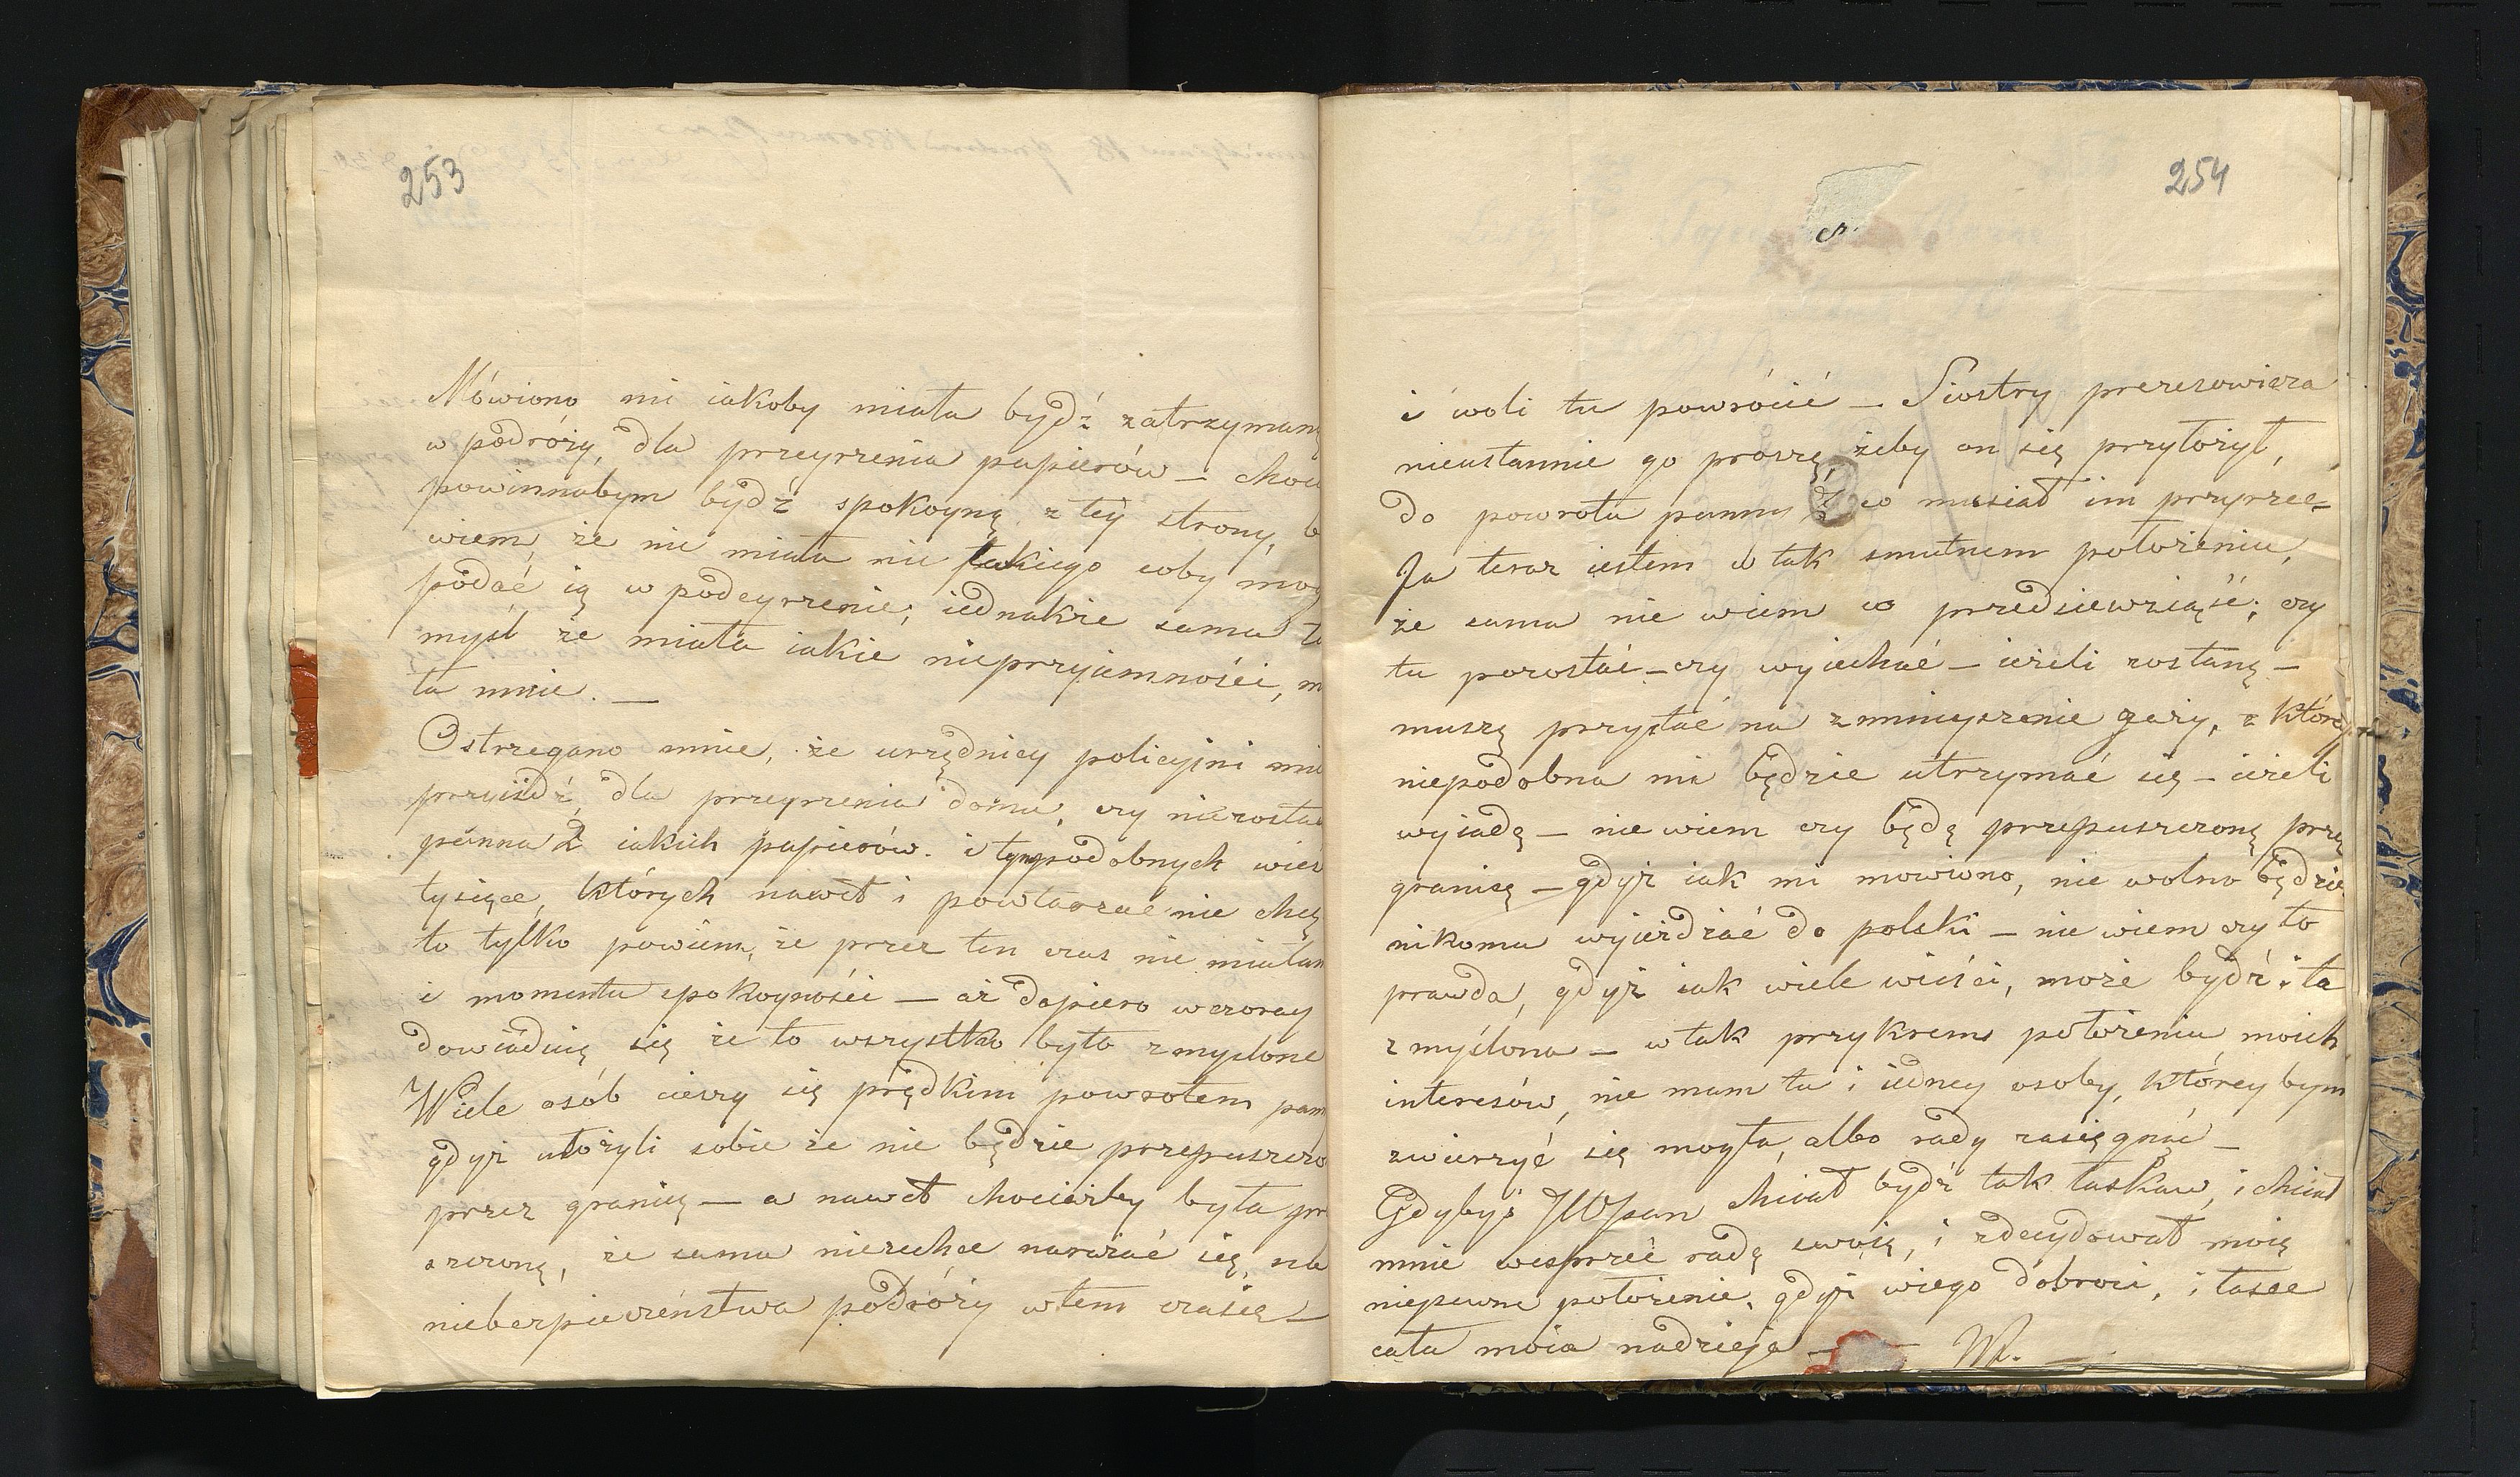 253
Mówiono mi iakoby miała bydź zatrzymaną
w podróży, dla przeyrzenia papierów — choc
powinnabym bydź spokoyną z tey strony, b
wiem, że nie miała nic takiego coby mog
podać ią w podeyrzenie; iednakże sama ta
myśl że miała iakie nieprzyiemności, m
ła mnie. —
Ostrzegano mnie, że urzędnicy policyjni mi
przyiśdź, dla przeyrzenia domu, czy nie zosta
panna Z iakich papierów. i tympodobnych wieś
tysiące, których nawet i powtarzać nie chcę
to tylko powiem, że przez ten czas nie miałam
i momentu spokoyności — aż dopiero wczoray
dowiaduię się że to wszystko było zmyślone
Wiele osób cieszy się prędkim powrotem pan
gdyż ułożyli sobie że nie będzie przepuszczo
przez granicę — a nawet chociażby była prz
szczoną, że sama niezechce narażać się, na
niebezpieczeństwa podróży wtem czasie —
254
i woli tu powrócić — Siostry prezesowicza
nieustannie go proszę, żeby on się przyłożył,
do powrotu panny Z co musiał im przyrzec —
Ja teraz iestem w tak smutnem położeniu,
że sama nie wiem co przedsiewziąść; czy
tu pozostać — czy wyiechać — ieżeli zostanę —
muszę przystać na zmnieyszenie gaży, z któręy
niepodobna mi będzie utrzymać się — ieżeli
wyjadę — nie wiem czy będę przepuszczoną przez
granicę — gdyż iak mi mowiono, nie wolno będzie
nikomu wyjeżdżać do polski — nie wiem czy to
prawda, gdyż iak wiele wieści, może bydź i ta
zmyślona — w tak przykrem położeniu moich
interesów, nie mam tu i iedney osoby, którey bym
zwierzyć się mogła, albo rady zasięgnąć —
Gdybyś JWPan chciał bydź tak łaskaw, i chciał
mnie wesprzeć radą swoią, i zdecydował moię
niepewne położenie, gdyż w iego dobroci, i łasce
cała moia nadzieja — M. —